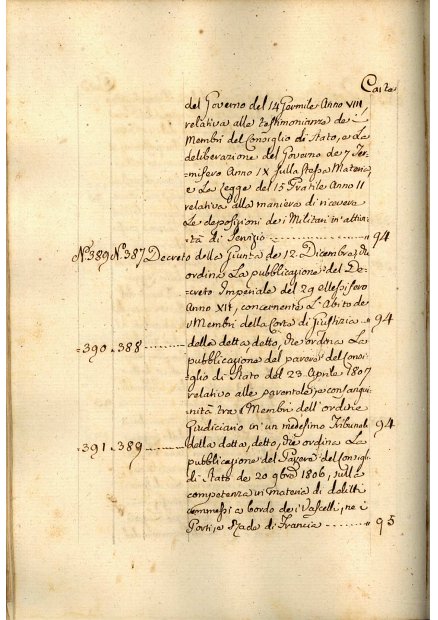 Carte
del Governo del 14 Germile Anno VIII,
relativa alle testimonianze de i
Membri del Consiglio di Stato, e La
deliberazione del Governo de 7 Ter=
=mifero Anno IX sulla stessa Materia
e La Legge del 15 Pratile Anno 11
relativa alla maniera di ricevere
Le deposizioni de i Militari in attivi=
tà di Servizio ............ " 94
N.° 389 N.° 387 Decreto della Giunta de 12. Dicembre, che
ordina La pubblicazione del De=
=creto Imperiale del 29 Messifero
Anno XII, concernente L'Abito de
i Membri della Corte di Giustizia -- " 94
= 390 " 388 ........ della detta, detto, che ordina La
pubblicazione del parere del Consi=
=glio di Stato del 23. Aprile 1807
relativo alle parentele, e consangui=
nità tra i Membri dell'ordine
Giudiciario in un medesimo Tribunale " 94
= 391 " 389 ........ della detta, detto, che ordina La
pubblicazione del Parere del Consigli
di Stato de 20 9bre 1806, sulla
competenza in materia di delitti
commessi a bordo de i Vascelli, ne i
Porti, e Rade di Francia ........ " 95